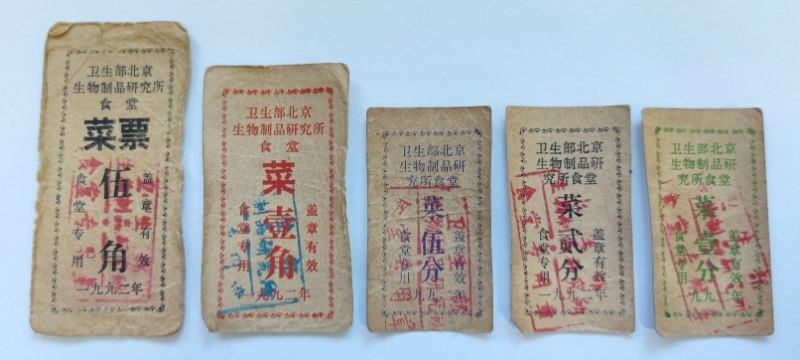 卫生部北京
生物制品研究所
食堂
菜票
伍角
食堂专用
盖章有效
一九九二年
卫生部北京
生物制品研究所
食堂
菜壹角
食堂专用
盖章有效
一九九二年
卫生部北京
生物制品研
究所食堂
菜伍分
食堂专用
盖章有效
卫生部北京
生物制品研
究所食堂
菜贰分
食堂专用
盖章有效
卫生部北京
生物制品研
究所食堂
菜壹分
食堂专用
盖章有效